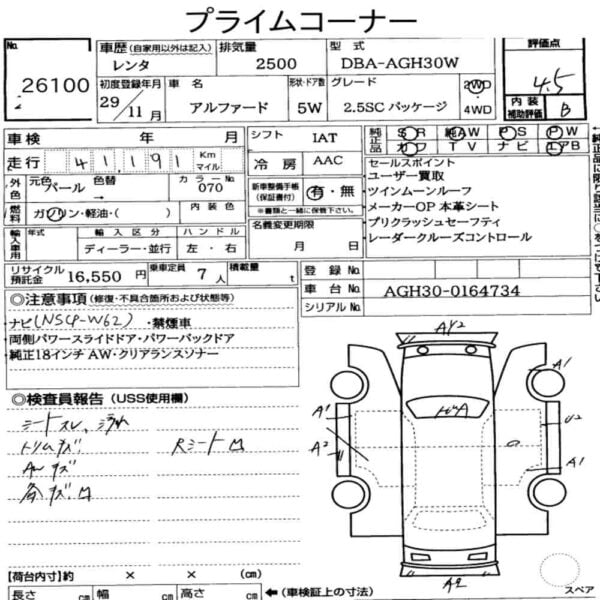 プライムコーナー
No.
26100
車歴 (自家用以外は記入)
レンタ
排気量
2500
型式
DBA-AGH30W
評価点
4.5
初度登録年月
29年/11月
車名
アルファード
形状・ドア数
5W
グレード
2.5SC パッケージ
2WD
・
4WD
内装
補助評価
B
車検 年 月
シフト
IAT
純正品
SR 純AW PS PW
カワ TV ナビ エアB
走行 41,191 Km
マイル
冷房
AAC
セールスポイント
・ユーザー買取
・ツインムーンルーフ
・メーカーOP 本革シート
・プリクラッシュセーフティ
・レーダークルーズコントロール
外色
元色
パール
色替
→
カラーNo.
070
新車整備手帳
(保証書付)
有・無
※書類と一緒に保管下さい。
燃料
ガソリン・軽油・( )
内装色
名義変更期限
月 日
輸入車用
年式
輸入区分
ディーラー・並行
ハンドル
左・右
リサイクル
預託金
16,550 円
乗車定員
7 人
積載量
t
登録No.
車台No.
AGH30-0164734
シリアルNo.
◎注意事項 (修復・不具合箇所および状態等)
ナビ(NSCP-W62)・禁煙車
・両側パワースライドドア・パワーバックドア
・純正18インチ AW・クリアランスソナー
◎検査員報告 (USS使用欄)
シートスレ、汚れ
トリムキズ Rシート凹
AWキズ
各キズ凹
AY2
A1
A1
A2
U2
A1
A2
【荷台内寸】約 × × (cm)
長さ cm 幅 cm 高さ cm ←(車検証上の寸法)
スペア